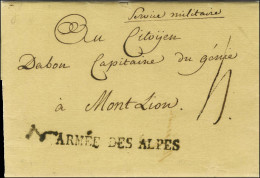 Service militaire
Au Citoÿen
Dabon Capitaine du génie
à Mont Lion.
ARMÉE DES ALPES